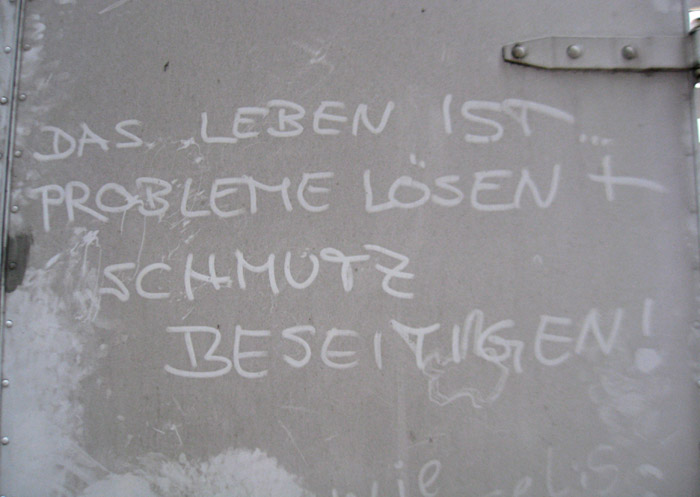 DAS LEBEN IST...
PROBLEME LÖSEN +
SCHMUTZ
BESEITIGEN!